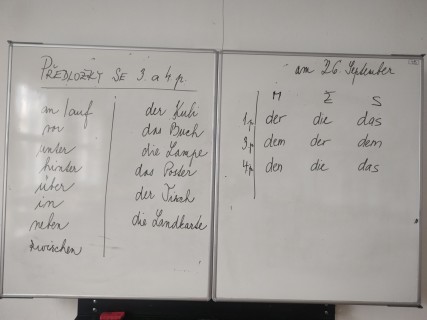 PŘEDLOŽKY SE 3. a 4. p.
an/auf
vor
unter
hinter
über
in
neben
zwischen
der Kuli
das Buch
die Lampe
das Poster
der Tisch
die Landkarte
am 26. September
M Ž S
1.p der die das
3.p dem der dem
4.p den die das